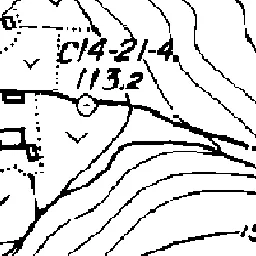 C14-21-4.
113.2